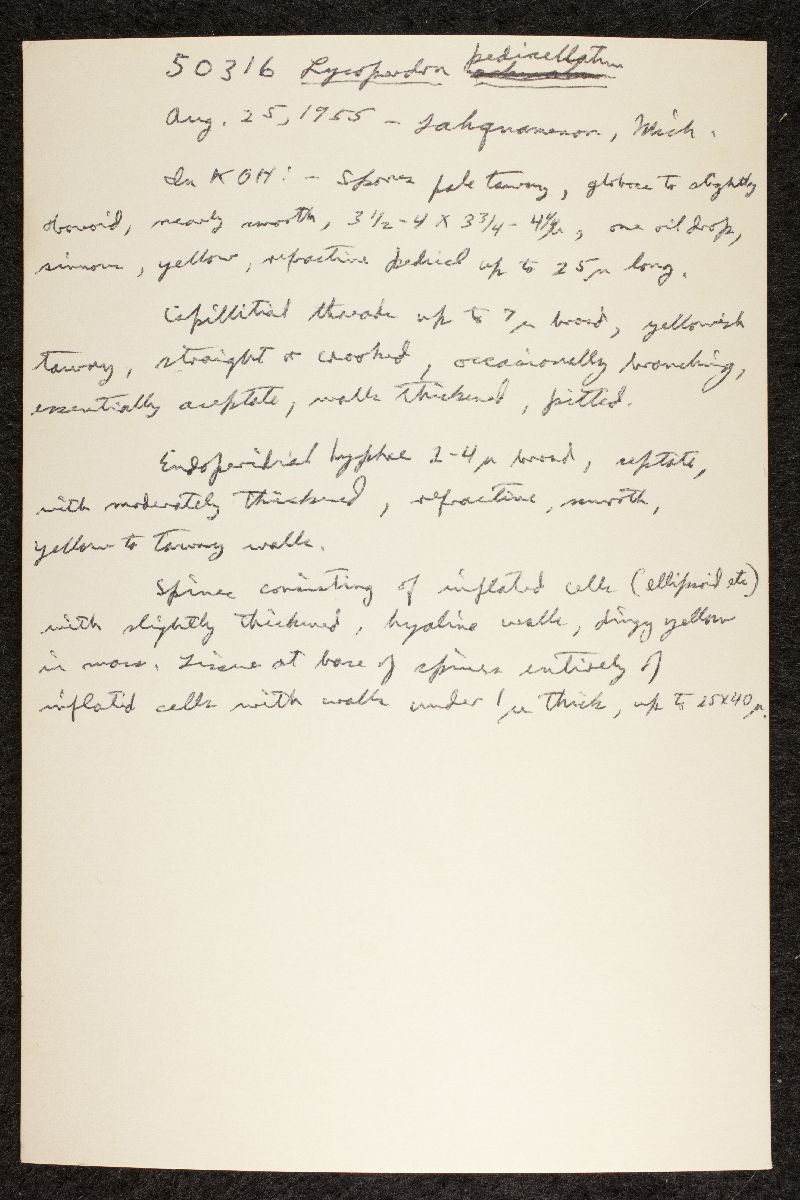 50316 Lycoperdon pedicellatum
Aug. 25, 1955 - Tahquamenon, Mich.
In KOH: - Spores pale tawny, globose to slightly
obovoid, nearly smooth, 3 1/2 - 4 X 3 3/4 - 4 µ, one oil drop,
sinuous, yellow, refractive pedicel up to 25 µ long.
Capillitial threads up to 7 µ broad, yellowish
tawny, straight or crooked, occasionally branching,
essentially aseptate, walls thickened, pitted.
Endoperidial hyphae 2-4 µ broad, septate,
with moderately thickened, refractive, smooth,
yellow to tawny walls.
Spines consisting of inflated cells (ellipsoid etc)
with slightly thickened, hyaline walls, dingy yellow
in mass. Tissue at base of spines entirely of
inflated cells with walls under 1 µ thick, up to 25x40 µ.